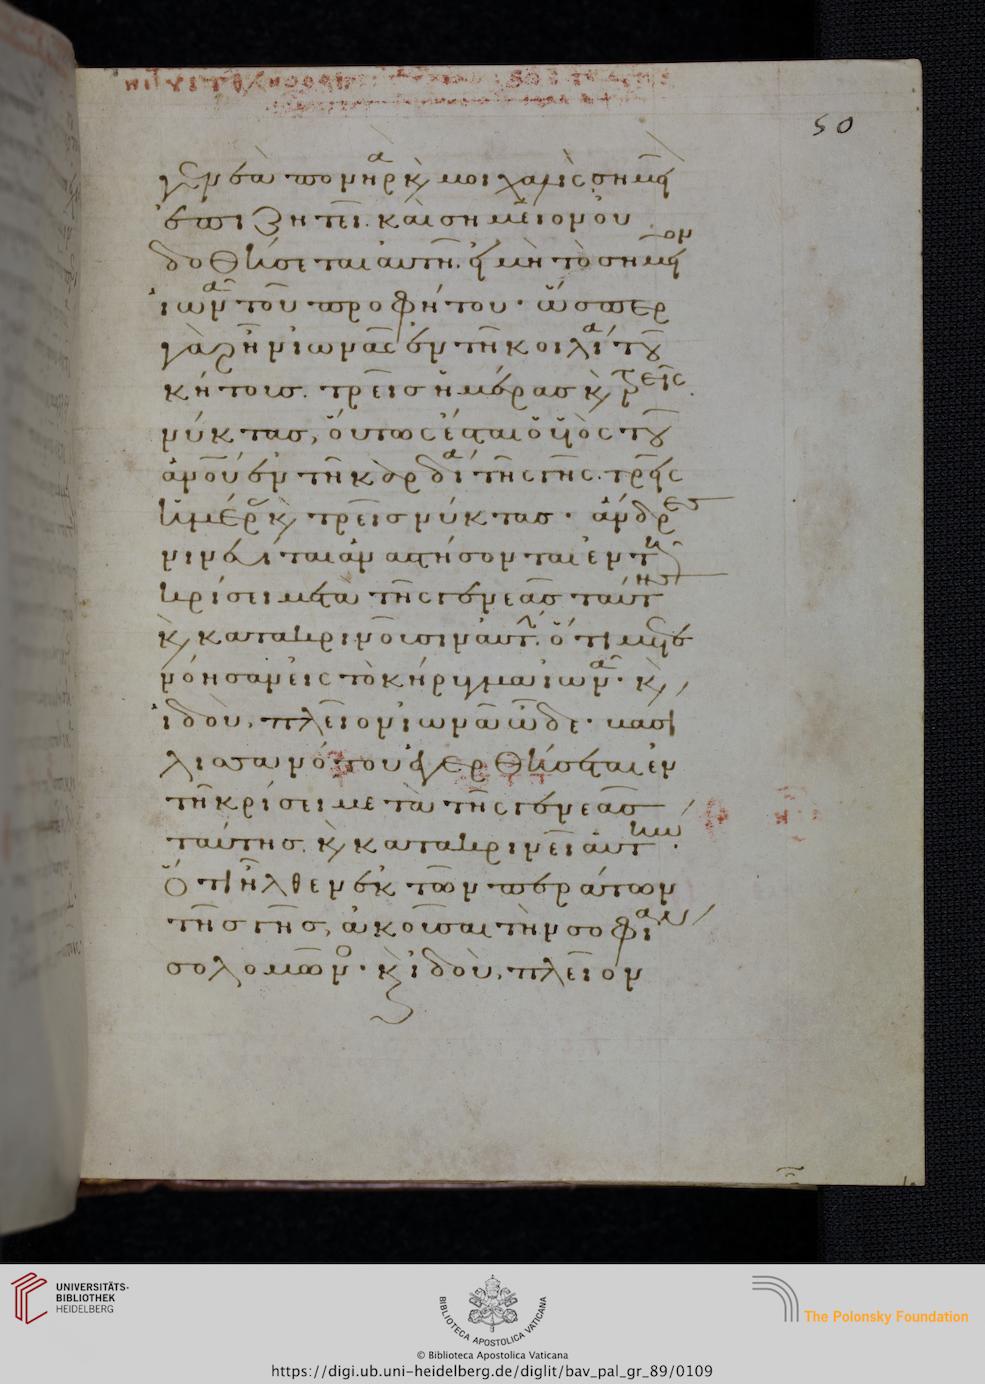 50
γενεὰ πονηρὰ κ μοιχαλὶς σημεῖ
ἐπιζητεῖ. καὶ σημεῖον οὐ
δοθήσεται αὐτῆ. εἰ μὴ τὸ σημεῖον
ἰωνᾶ τοῦ προφήτου. ὥσπερ
γὰρ ἦν ἰωνᾶς ἐν τῆ κοιλία τοῦ
κήτους. τρεῖς ἡμέρας κ τρεῖς
νύκτας, οὕτως ἔσται ὁ υἱὸς τοῦ
ἀνοῦ ἐν τῆ καρδία τῆς γῆς. τρεῖς
ἡμέρας κ τρεῖς νύκτας. ἄνδρες
νινευίται ἀναστήσονται ἐν τῆ
κρίσει μετὰ τῆς γενεᾶς ταύτης
κ κατακρινοῦσιν αὐτήν. ὅτι μετε
νόησαν εἰς τὸ κήρυγμα ἰωνᾶ. κ
ἰδοὺ, πλεῖον ἰωνᾶ ὧδε. βασί
λισσα νότου ἐγερθήσεται ἐν
τῆ κρίσει μετὰ τῆς γενεᾶς
ταύτης. κ κατακρινεῖ αὐτήν.
Ὅτι ἦλθεν ἐκ τῶν περάτων
τῆς γῆς, ἀκοῦσαι τὴν σοφίαν
σολομῶνο. κ ἰδοὺ, πλεῖον
UNIVERSITÄTS-
BIBLIOTHEK
HEIDELBERG
BIBLIOTECA APOSTOLICA VATICANA
The Polonsky Foundation
© Biblioteca Apostolica Vaticana
https://digi.ub.uni-heidelberg.de/diglit/bav_pal_gr_89/0109